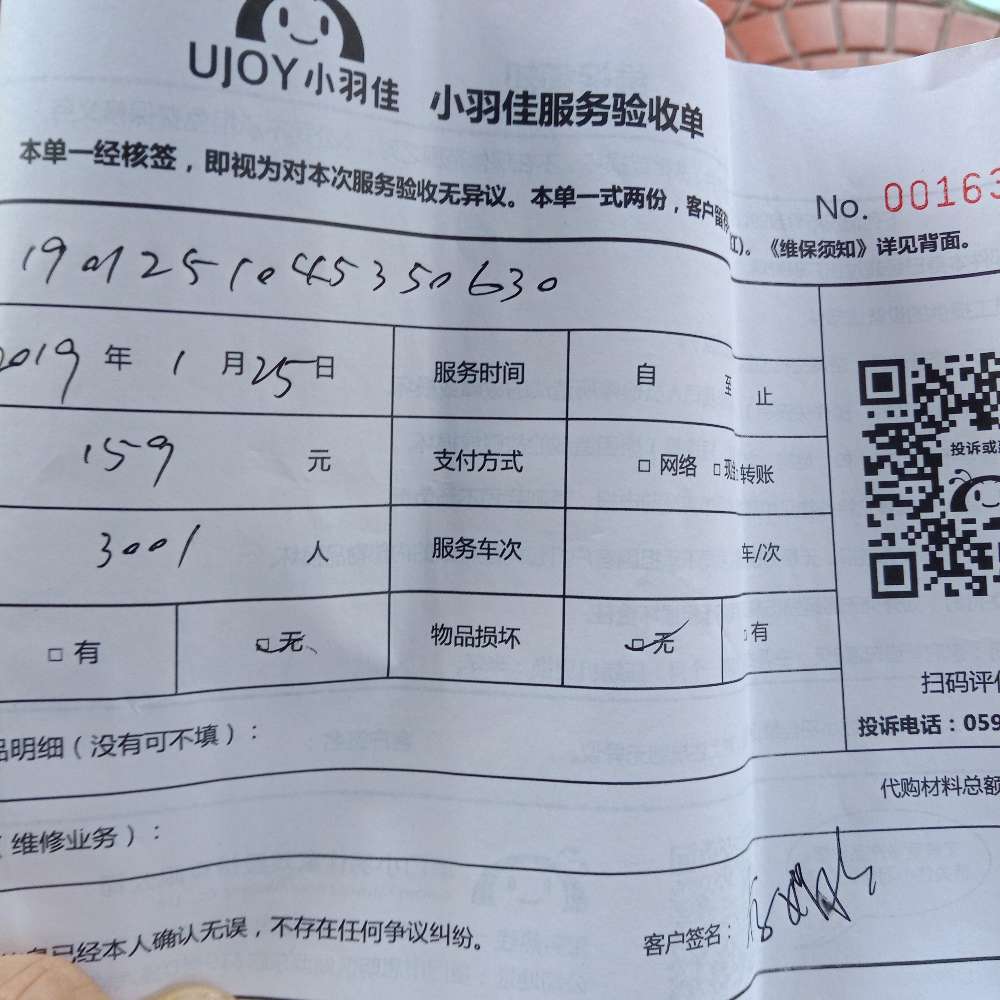 UJOY小羽佳 小羽佳服务验收单
本单一经核签，即视为对本次服务验收无异议。本单一式两份，客户留存 》。《维保须知》详见背面。
No. 00163
1901251045350630
2019 年 1 月 25 日 服务时间 自 至 止
159 元 支付方式 □ 网络 □ 现金 转账
3001 人 服务车次 车/次
□ 有 □ 无 物品损坏 □ 无 □ 有
投诉或
扫码评价
投诉电话：059
品明细（没有可不填）：
代购材料总额
（维修业务）：
已经本人确认无误，不存在任何争议纠纷。
客户签名：